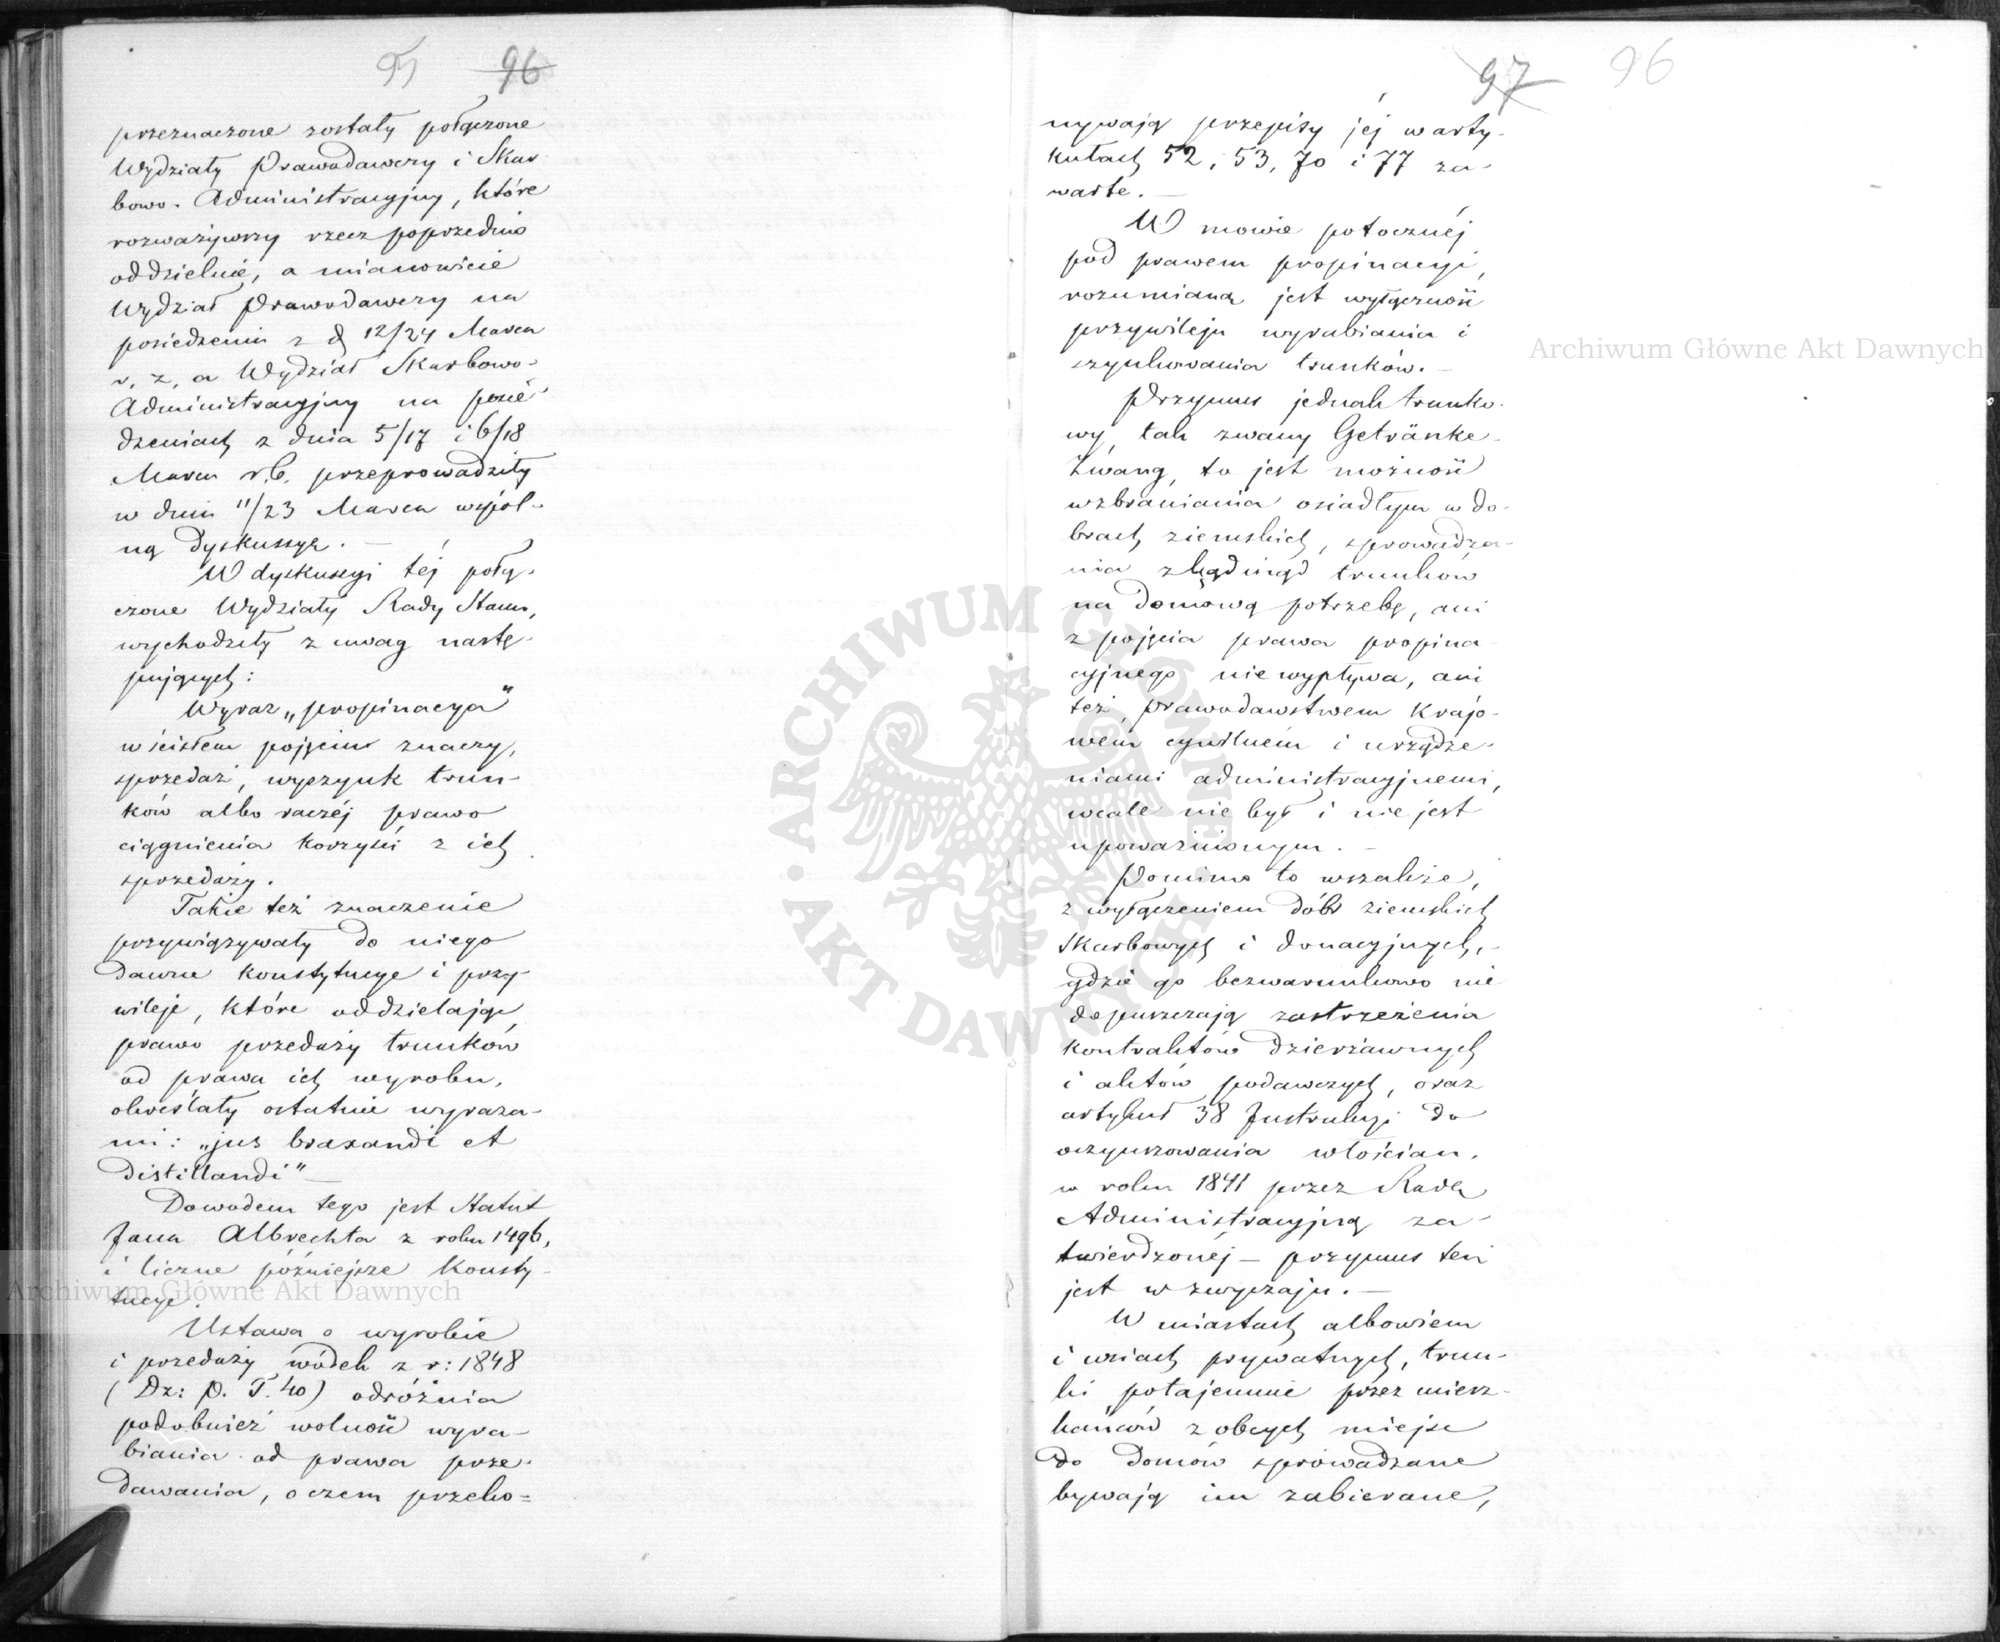 95 96
przeznaczone zostały połączone
Wydziały Prawodawczy i Skar
bowo-Administracyjny, które
rozważywszy rzecz poprzednio
oddzielnie, a mianowicie
Wydział Prawodawczy na
posiedzeniu z d 12/24 Marca
r. z, a Wydział Skarbowo-
Administracyjny na posie-
dzeniach z dnia 5/17 i 6/18
Marca r.b. przeprowadziły
w dniu 11/23 Marca wspól-
ną dyskussyę. —
W dyskussyi téj połą-
czone Wydziały Rady Stanu,
wychodziły z uwag nastę-
pujących:
Wyraz „propinacya"
w ścisłem pojęciu znaczy,
sprzedaż, wyszynk trun-
ków albo raczéj prawo
ciągnienia korzyści z ich
sprzedaży.
Takie też znaczenie
przywiązywały do niego
dawne konstytucye i przy-
wileje, które oddzielając
prawo przedaży trunków
od prawa ich wyrobu,
określały ostatnie wyraza-
mi: „jus braxandi et
distillandi" —
Dowodem tego jest Statut
Jana Albrechta z roku 1496,
i liczne późniejsze Konsty-
tucye.
Ustawa o wyrobie
i przedaży wódek z r: 1848
(Dz: P. T. 40) odróżnia
podobnież wolność wyra-
biania od prawa prze-
dawania, o czem przeko=
97 96
nywają przepisy jéj w arty-
kułach 52, 53, 70 i 77 za-
warte. —
W mowie potocznéj
pod prawem propinacyi,
rozumianą jest wyłączność
przywileju wyrabiania i
szynkowania trunków. —
Przymus jednak trunko-
wy, tak zwany Getränke-
Zwang, to jest możność
wzbraniania osiadłym w do-
brach ziemskich, sprowadza-
nia zkądinąd trunków
na domową potrzebę, ani
z pojęcia prawa propina-
cyjnego nie wypływa, ani
też, prawodawstwem krajo-
wém cywilném i urządze-
niami administracyjnemi,
wcale nie był i nie jest
upoważnionym. —
Pomimo to wszakże,
z wyłączeniem dóbr ziemskich
Skarbowych i donacyjnych,
gdzie go bezwarunkowo nie
dopuszczają zastrzeżenia
kontraktów dzierżawnych
i aktów podawczych, oraz
artykuł 38 Instrukcyi do
oczynszowania włościan,
w roku 1841 przez Radę
Administracyjną za-
twierdzonéj — przymus ten
jest w zwyczaju. —
W miastach albowiem
i wsiach prywatnych, trun-
ki potajemnie przez miesz-
kańców z obcych miejsc
do domów sprowadzane
bywają im zabierane,
Archiwum Główne Akt Dawnych
Archiwum Główne Akt Dawnych
• ARCHIWUM GŁÓWNE • AKT DAWNYCH